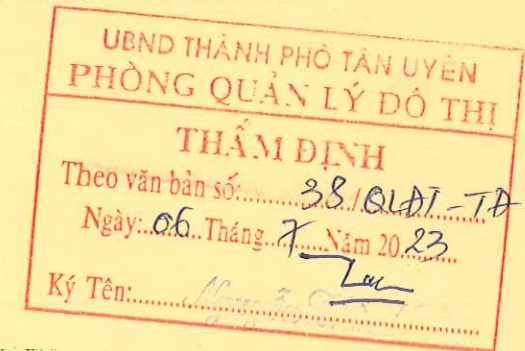 UBND THÀNH PHỐ TÂN UYÊN
PHÒNG QUẢN LÝ ĐÔ THỊ
THẨM ĐỊNH
Theo văn bản số:.....38/QLĐT-TĐ
Ngày:..06..Tháng..7....Năm 20.23
Ký Tên: